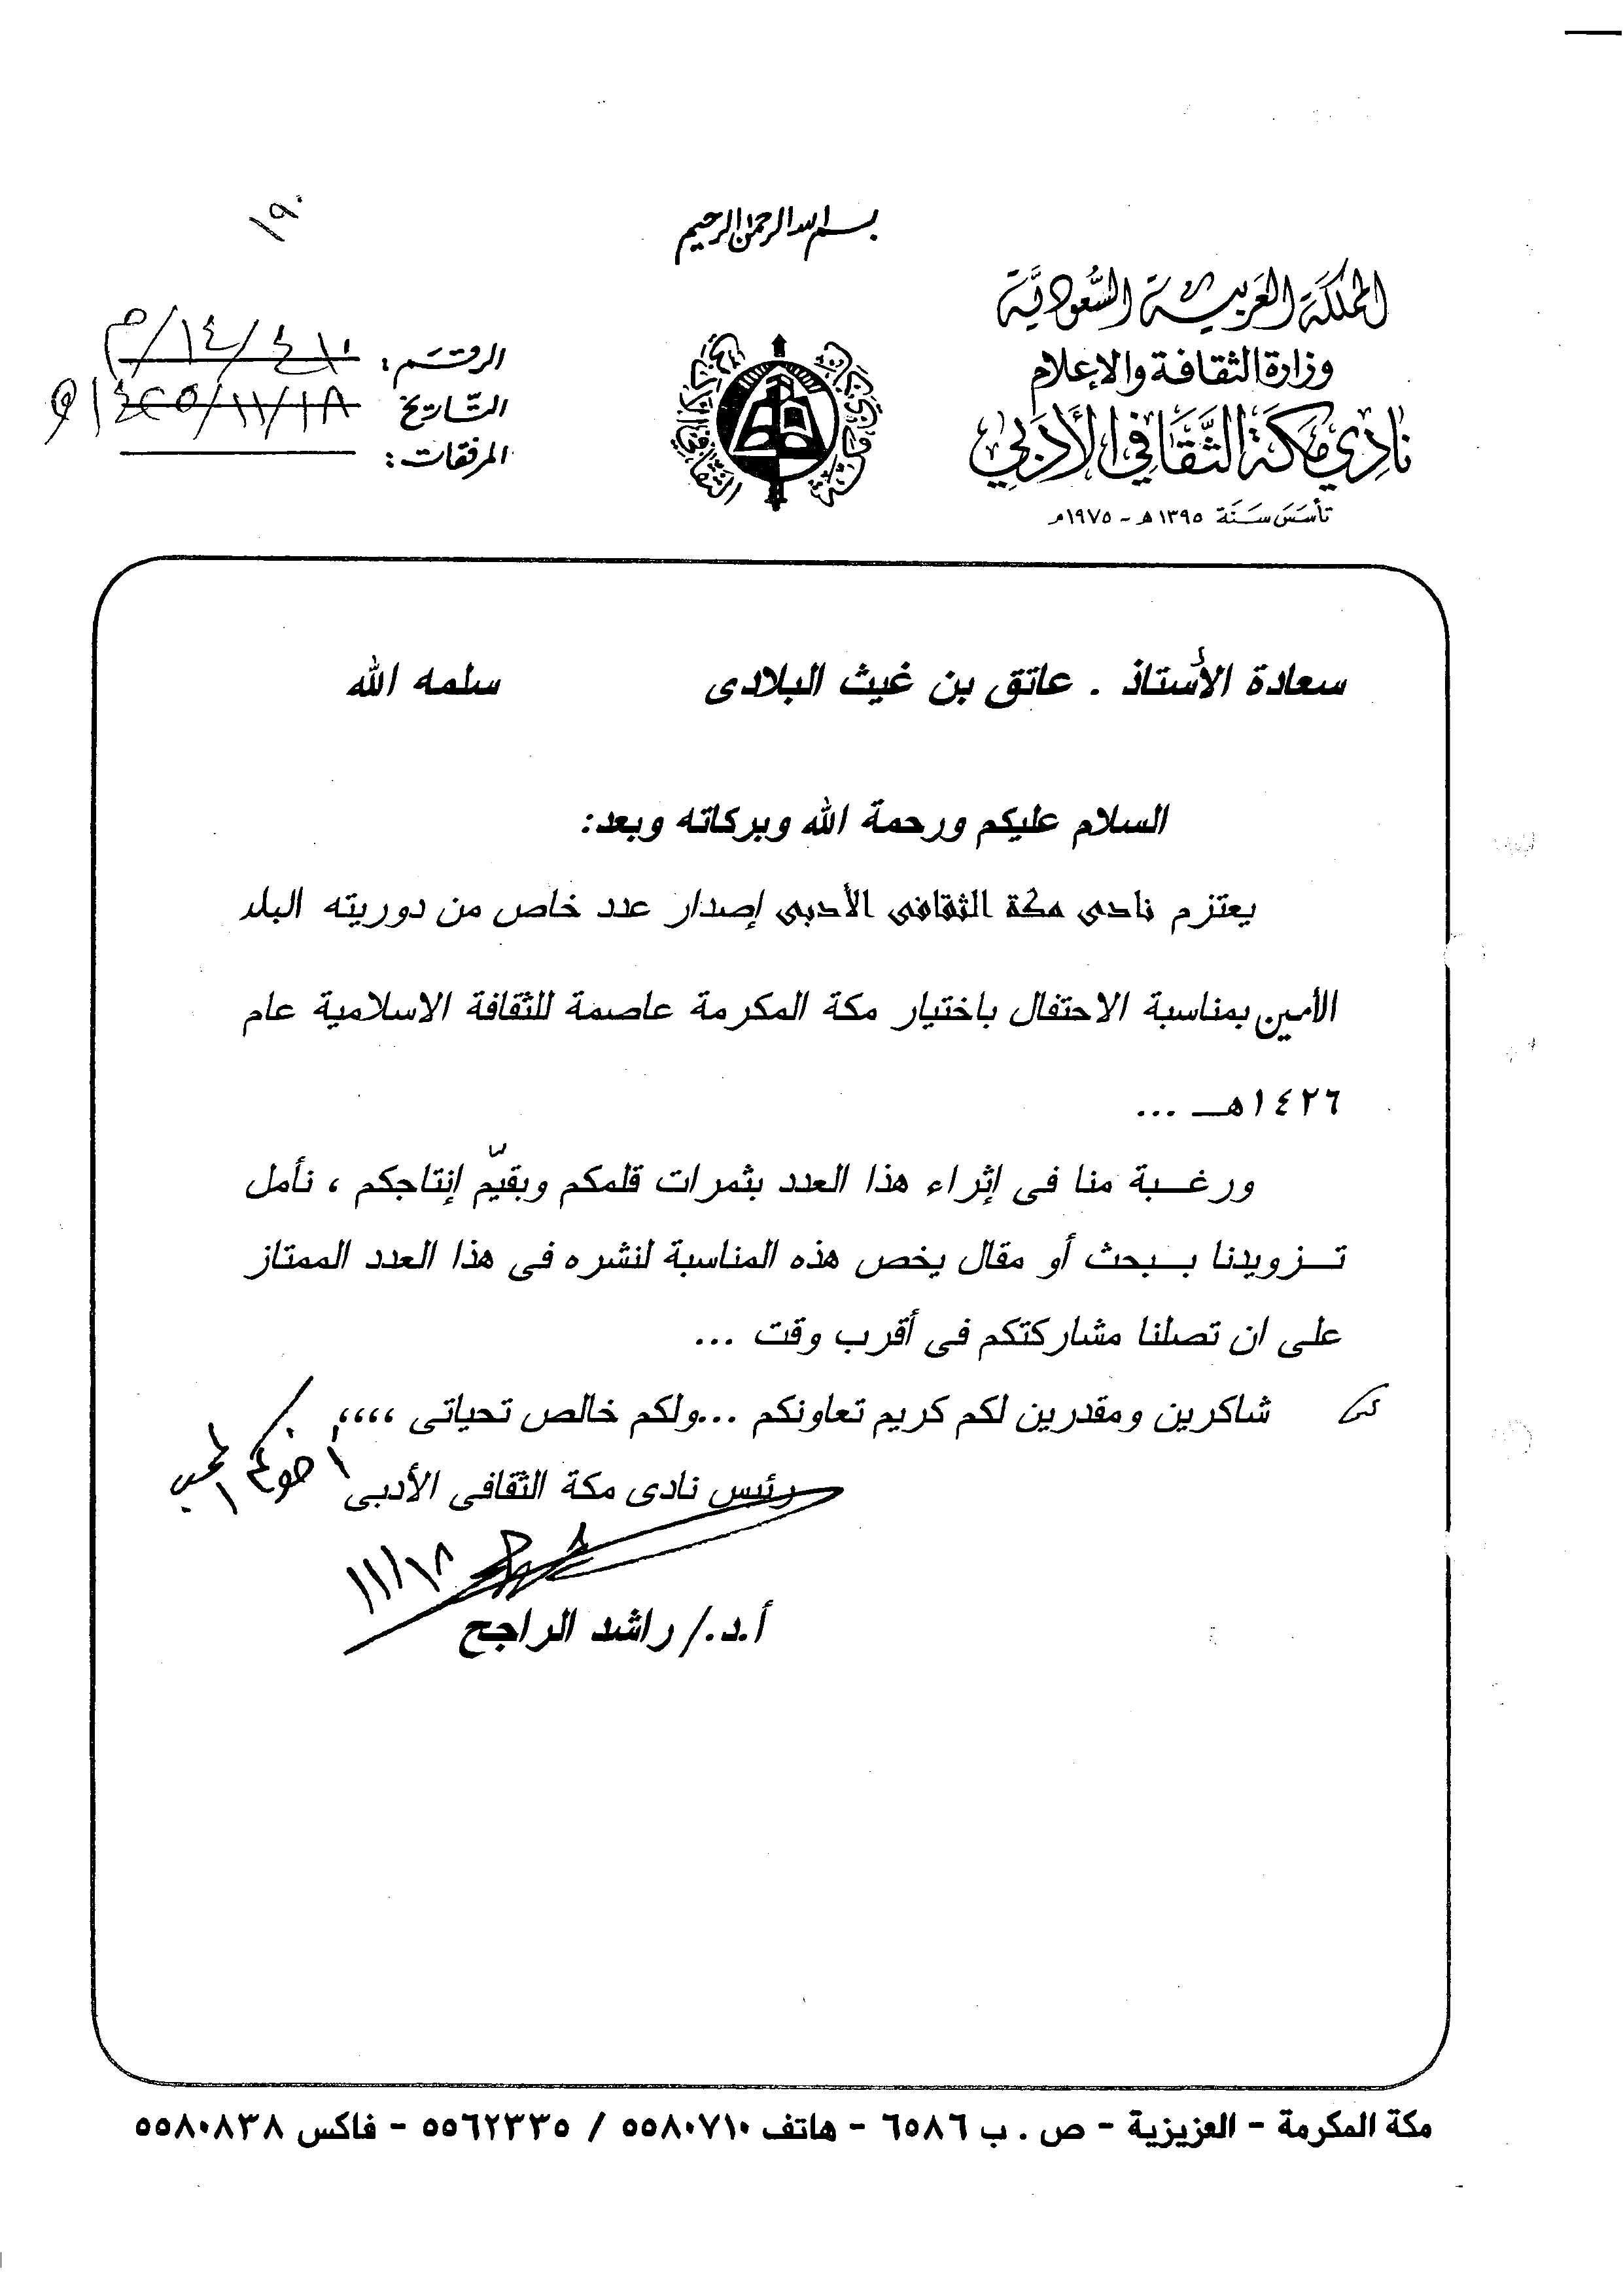 ١٩٠
بسم الله الرحمن الرحيم
المملكة العربية السعودية
وزارة الثقافة والإعلام
نادي مكة الثقافي الأدبي
تأسس سنة ١٣٩٥هـ - ١٩٧٥م
الرقم: ٤١٠/١٤/م
التاريخ ١٤٢٥/١١/١٨
المرفقات:
سعادة الأستاذ . عاتق بن غيث البلادى سلمه الله
السلام عليكم ورحمة الله وبركاته وبعد:
يعتزم نادى مكة الثقافى الأدبى إصدار عدد خاص من دوريته البلد
الأمين بمناسبة الاحتفال باختيار مكة المكرمة عاصمة للثقافة الاسلامية عام
١٤٢٦هـ ...
ورغـبة منا فى إثراء هذا العدد بثمرات قلمكم وبقيّم إنتاجكم ، نأمل
تـزويدنا بـبحث أو مقال يخص هذه المناسبة لنشره فى هذا العدد الممتاز
على ان تصلنا مشاركتكم فى أقرب وقت ...
شاكرين ومقدرين لكم كريم تعاونكم ...ولكم خالص تحياتى ،،،،
أخوكم المحب
رئيس نادى مكة الثقافى الأدبى
١١/١٨
أ.د./ راشد الراجح
مكة المكرمة - العزيزية - ص . ب ٦٥٨٦ - هاتف ٥٥٨٠٧١٠ / ٥٥٦٢٣٣٥ - فاكس ٥٥٨٠٨٣٨